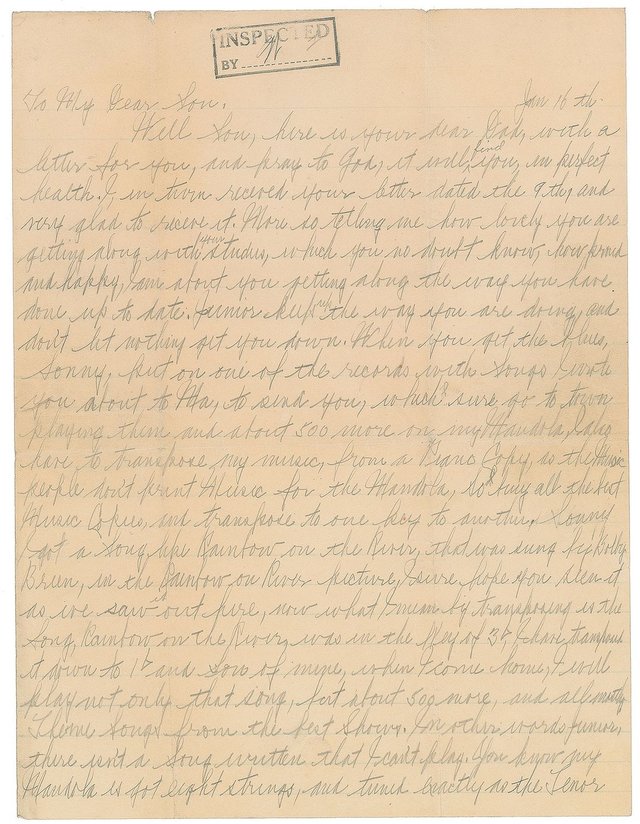 INSPECTED
BY
To My Dear Son. Jan 16 th.
Well Son, here is your dear Dad, with a
letter for you, and pray to God, it will find you, in perfect
health. I in turn receved your letter dated the 9th, and
very glad to receve it. More so telling me how lovely you are
getting along with your studies, which you no doubt know, how proud
and happy, I am about you getting along the way you have
done up to date. Junior keep up the way you are doing, and
don't let nothing get you down. When you get the blues,
Sonny, put on one of the records with songs I wrote
you about to Ma, to send you, which I sure go to town
playing them and about 500 more on my Mandola, I also
have to transpose my music, from a Piano Copy, as the Music
people don't print Music for the Mandola, so I buy all the best
Music Copies, and transpose to one key to another. Sonny
I got a song, like Rainbow on the River, that was sung by Bobby
Brien, in the Rainbow on River picture, I sure hope you seen it
as we saw it out here, now what I mean by transposing is the
Song, Rainbow on the River, was in the Key of 3b, I have transposed
it down to 1b and Son of mine, when I come home, I will
play not only that song, but about 500 more, and all mostly
Theme Songs from the best Shows. In other words Junior,
there isn't a song written that I can't play. You know my
Mandola is got eight strings, and tuned exactly as the Tenor